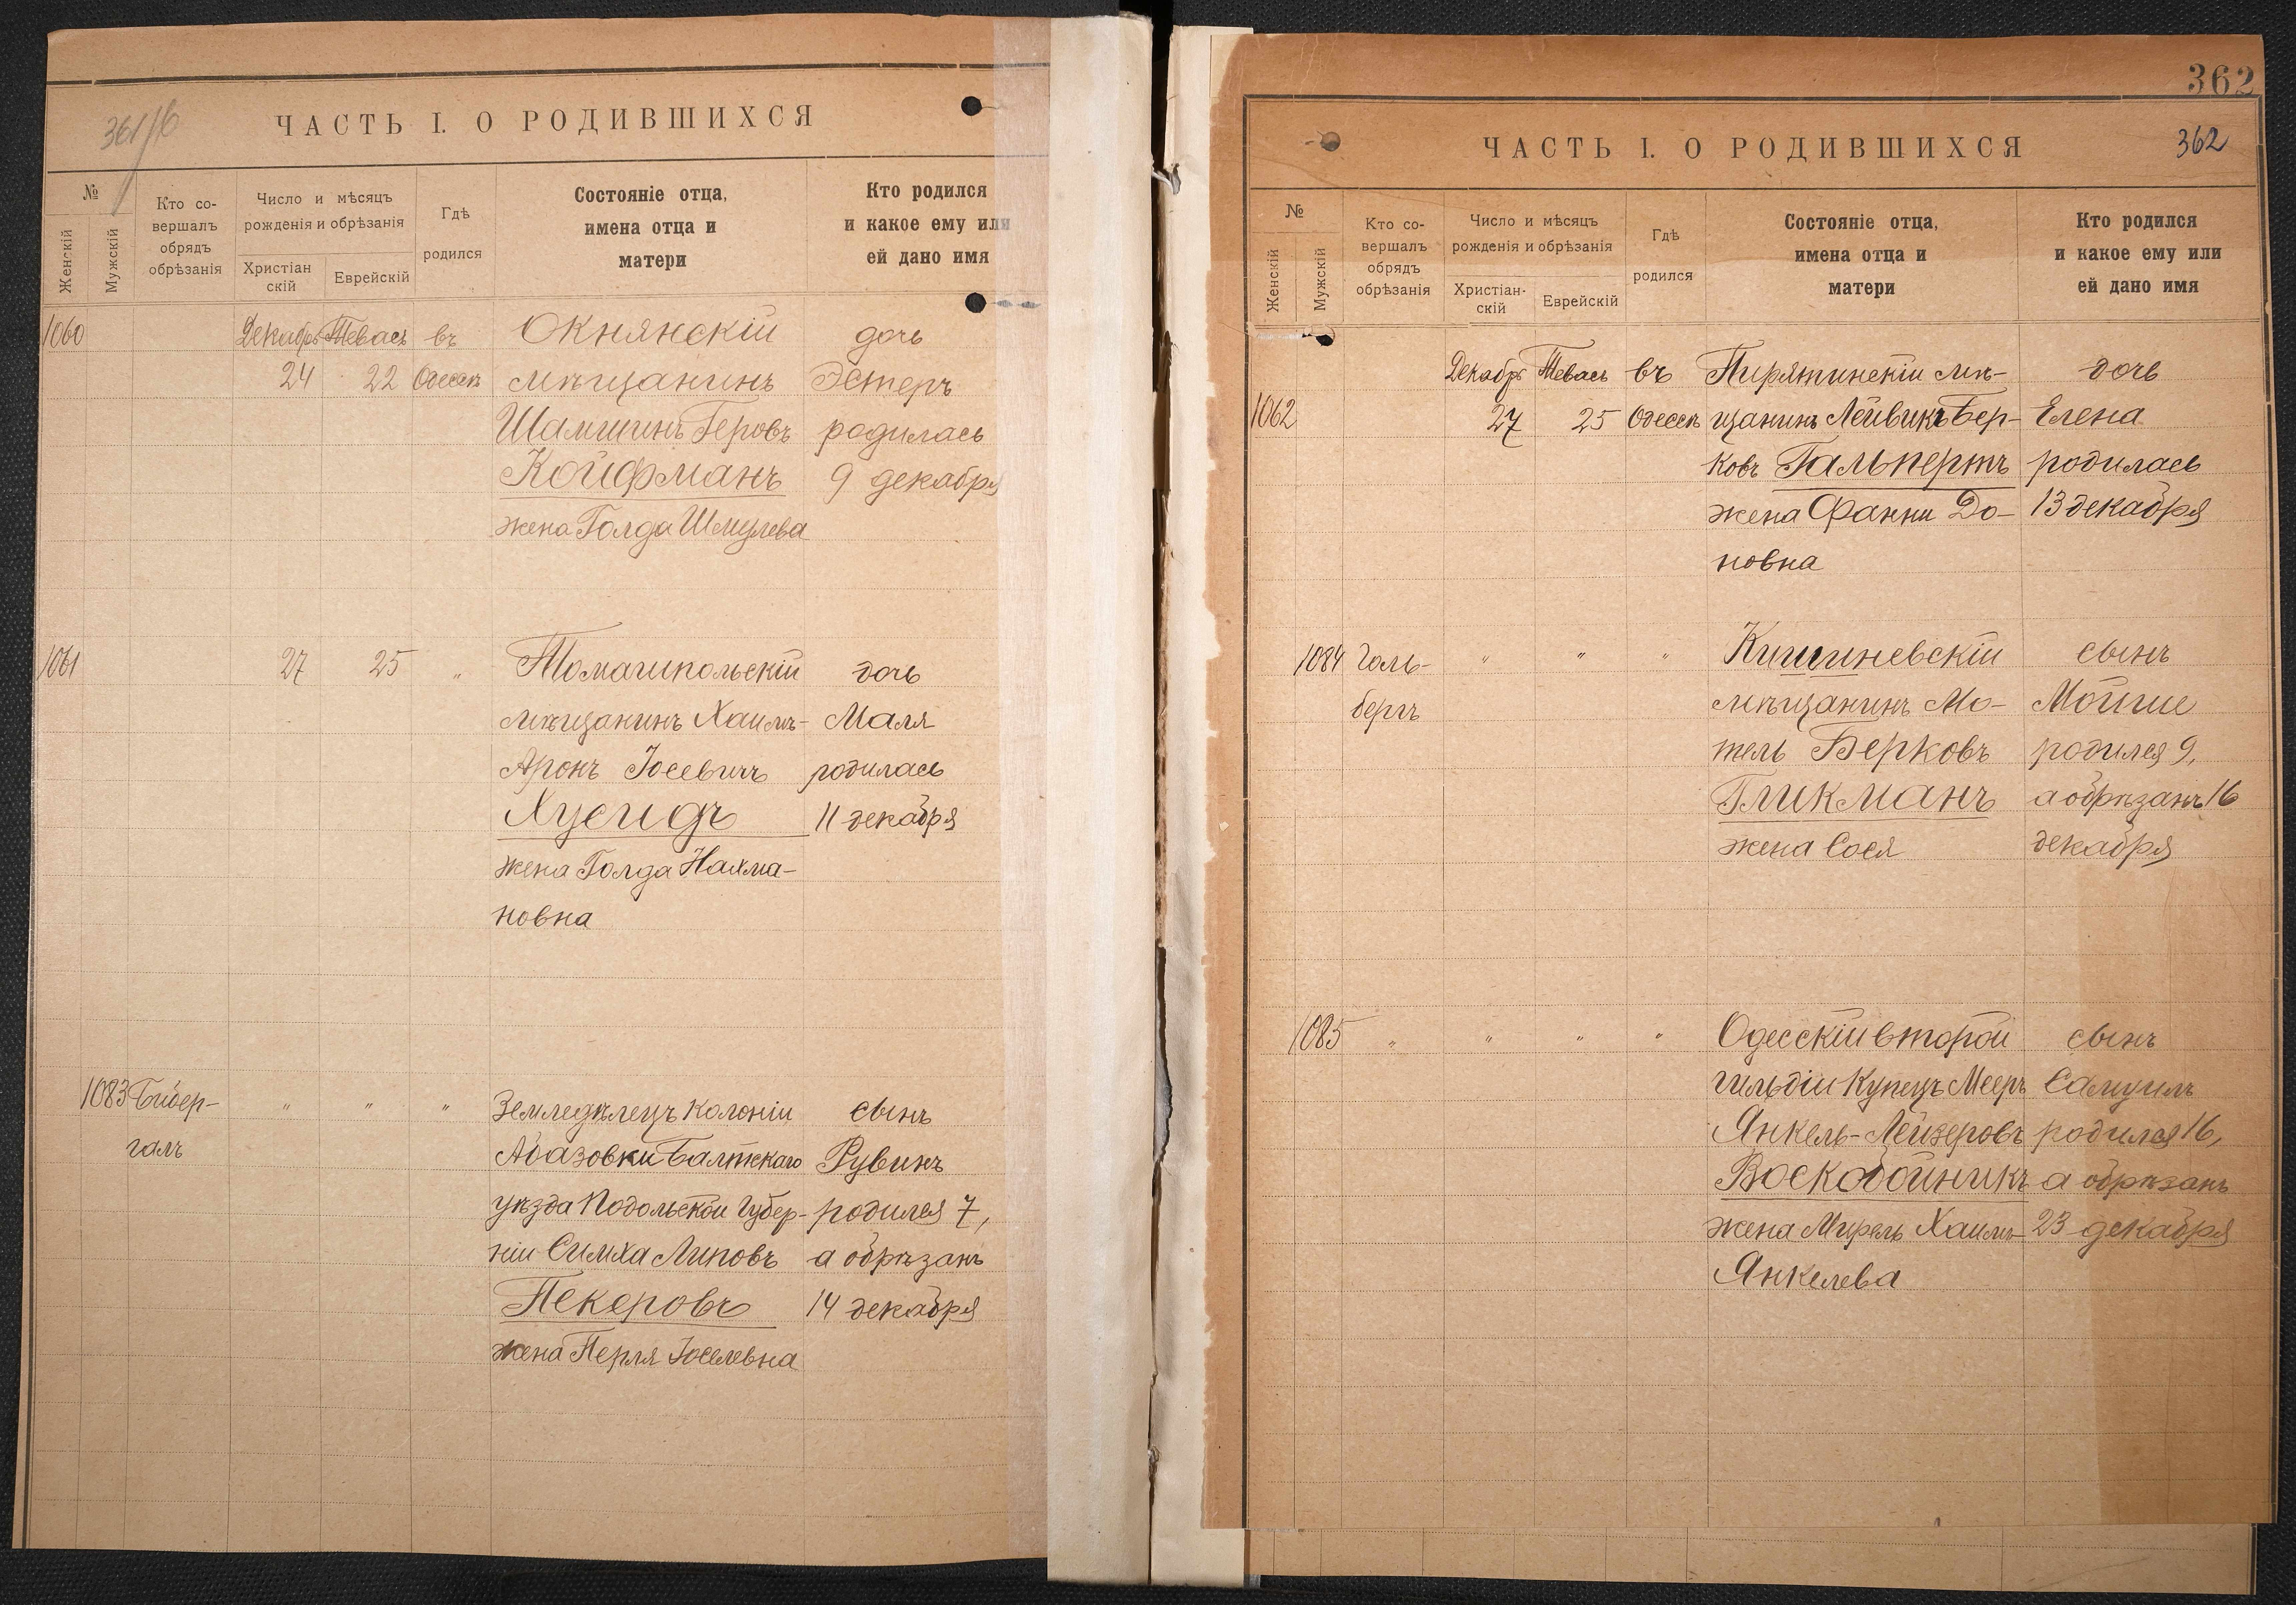 361/б
ЧАСТЬ I. О РОДИВШИХСЯ
№
Женскій
Мужскій
Кто со-
вершалъ
обрядъ
обрѣзанія
Число и мѣсяцъ
рожденія и обрѣзанія
Христіан
скій
Еврейскій
Гдѣ
родился
Состояніе отца,
имена отца и
матери
Кто родился
и какое ему или
ей дано имя
1060 Декабрь Тевасъ въ Окнянскій дочь
24 22 Одессѣ мѣщанинъ Эстеръ
Шамшинъ Геровъ родилась
Койфманъ 9 декабря
жена Голда Шмулева
1061 27 25 " Томашпольскій дочь
мѣщанинъ Хаимъ- Маля
Аронъ Іосевичъ родилась
Хусидъ 11 декабря
жена Голда Нахма-
новна
1083 Бибер- " " " Земледѣлецъ колоніи сынъ
галъ Абазовки Балтскаго Рувинъ
уѣзда Подольской Губер- родился 7,
ніи Симха Липовъ а обрѣзанъ
Пекеровъ 14 декабря
жена Перля Іоселевна
362
ЧАСТЬ I. О РОДИВШИХСЯ
362
№
Женскій
Мужскій
Кто со-
вершалъ
обрядъ
обрѣзанія
Число и мѣсяцъ
рожденія и обрѣзанія
Христіан-
скій
Еврейскій
Гдѣ
родился
Состояніе отца,
имена отца и
матери
Кто родился
и какое ему или
ей дано имя
Декабрь Тевасъ въ Пирятинскій мѣ- дочь
1062 27 25 Одессѣ щанинъ Лейвикъ Бер- Елена
ковъ Гальпертъ родилась
жена Фанни До- 13 декабря
новна
1084 Голь- " " " Кишиневскій сынъ
бергъ мѣщанинъ Мо- Мойше
тель Берковъ родился 9,
Гликманъ а обрѣзанъ 16
жена Сося декабря
1085 " " " " Одесскій второй сынъ
гильдіи Купецъ Мееръ Самуилъ
Янкель-Лейзеровъ родился 16,
Воскобойникъ а обрѣзанъ
жена Мирель Хаимъ- 23 декабря
Янкелева